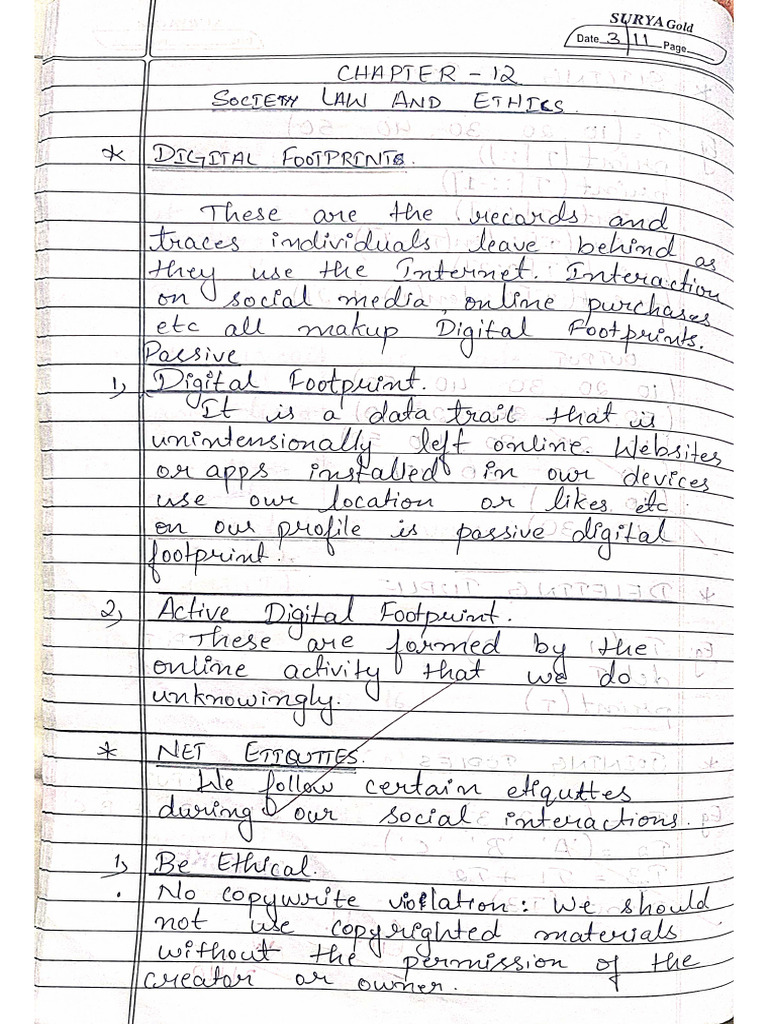 SURYA Gold
Date 3/11 Page
CHAPTER - 12
SOCIETY LAW AND ETHICS.
* DIGITAL FOOTPRINTS.
These are the records and
traces individuals leave behind as
they use the Internet. Interaction
on social media, online purchases
etc all makup Digital Footprints.
Passive
1) Digital Footprint.
It is a data trail that is
unintensionally left online. Websites
or apps installed in our devices
use our location or likes etc
on our profile is passive digital
footprint.
2) Active Digital Footprint.
These are formed by the
online activity that we do
unknowingly.
* NET ETTQUTTES.
We follow certain etiquttes
during our social interactions.
1) Be Ethical.
. No copywrite violation: We should
not use copyrighted materials
without the permission of the
creator or owner.